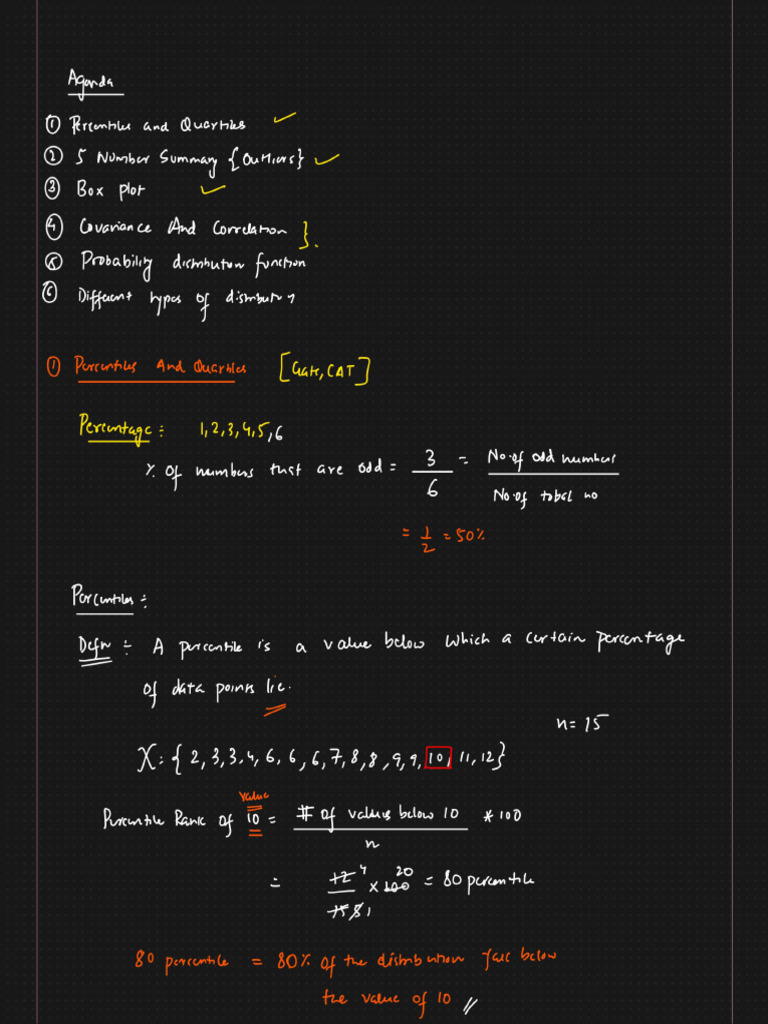 Agenda
① Percentiles and Quartiles ✓
② 5 Number Summary {Outliers} ✓
③ Box plot ✓
④ Covariance And Correlation }.
⑤ Probability distribution function
⑥ Different types of distribution
① Percentiles And Quartiles [Gate, CAT]
Percentage : 1, 2, 3, 4, 5, 6
% of numbers that are odd = 3/6 = No. of odd numbers / No. of total no
= 1/2 = 50%
Percentiles :
Defn : A percentile is a value below which a certain percentage
of data points lie.
n = 15
X : { 2, 3, 3, 4, 6, 6, 6, 7, 8, 8, 9, 9, 10, 11, 12 }
value
Percentile Rank of 10 = # of values below 10 / n * 100
= 12 4 / 15 5 1 × 100 20 = 80 percentile
80 percentile = 80% of the distribution fall below
the value of 10 //